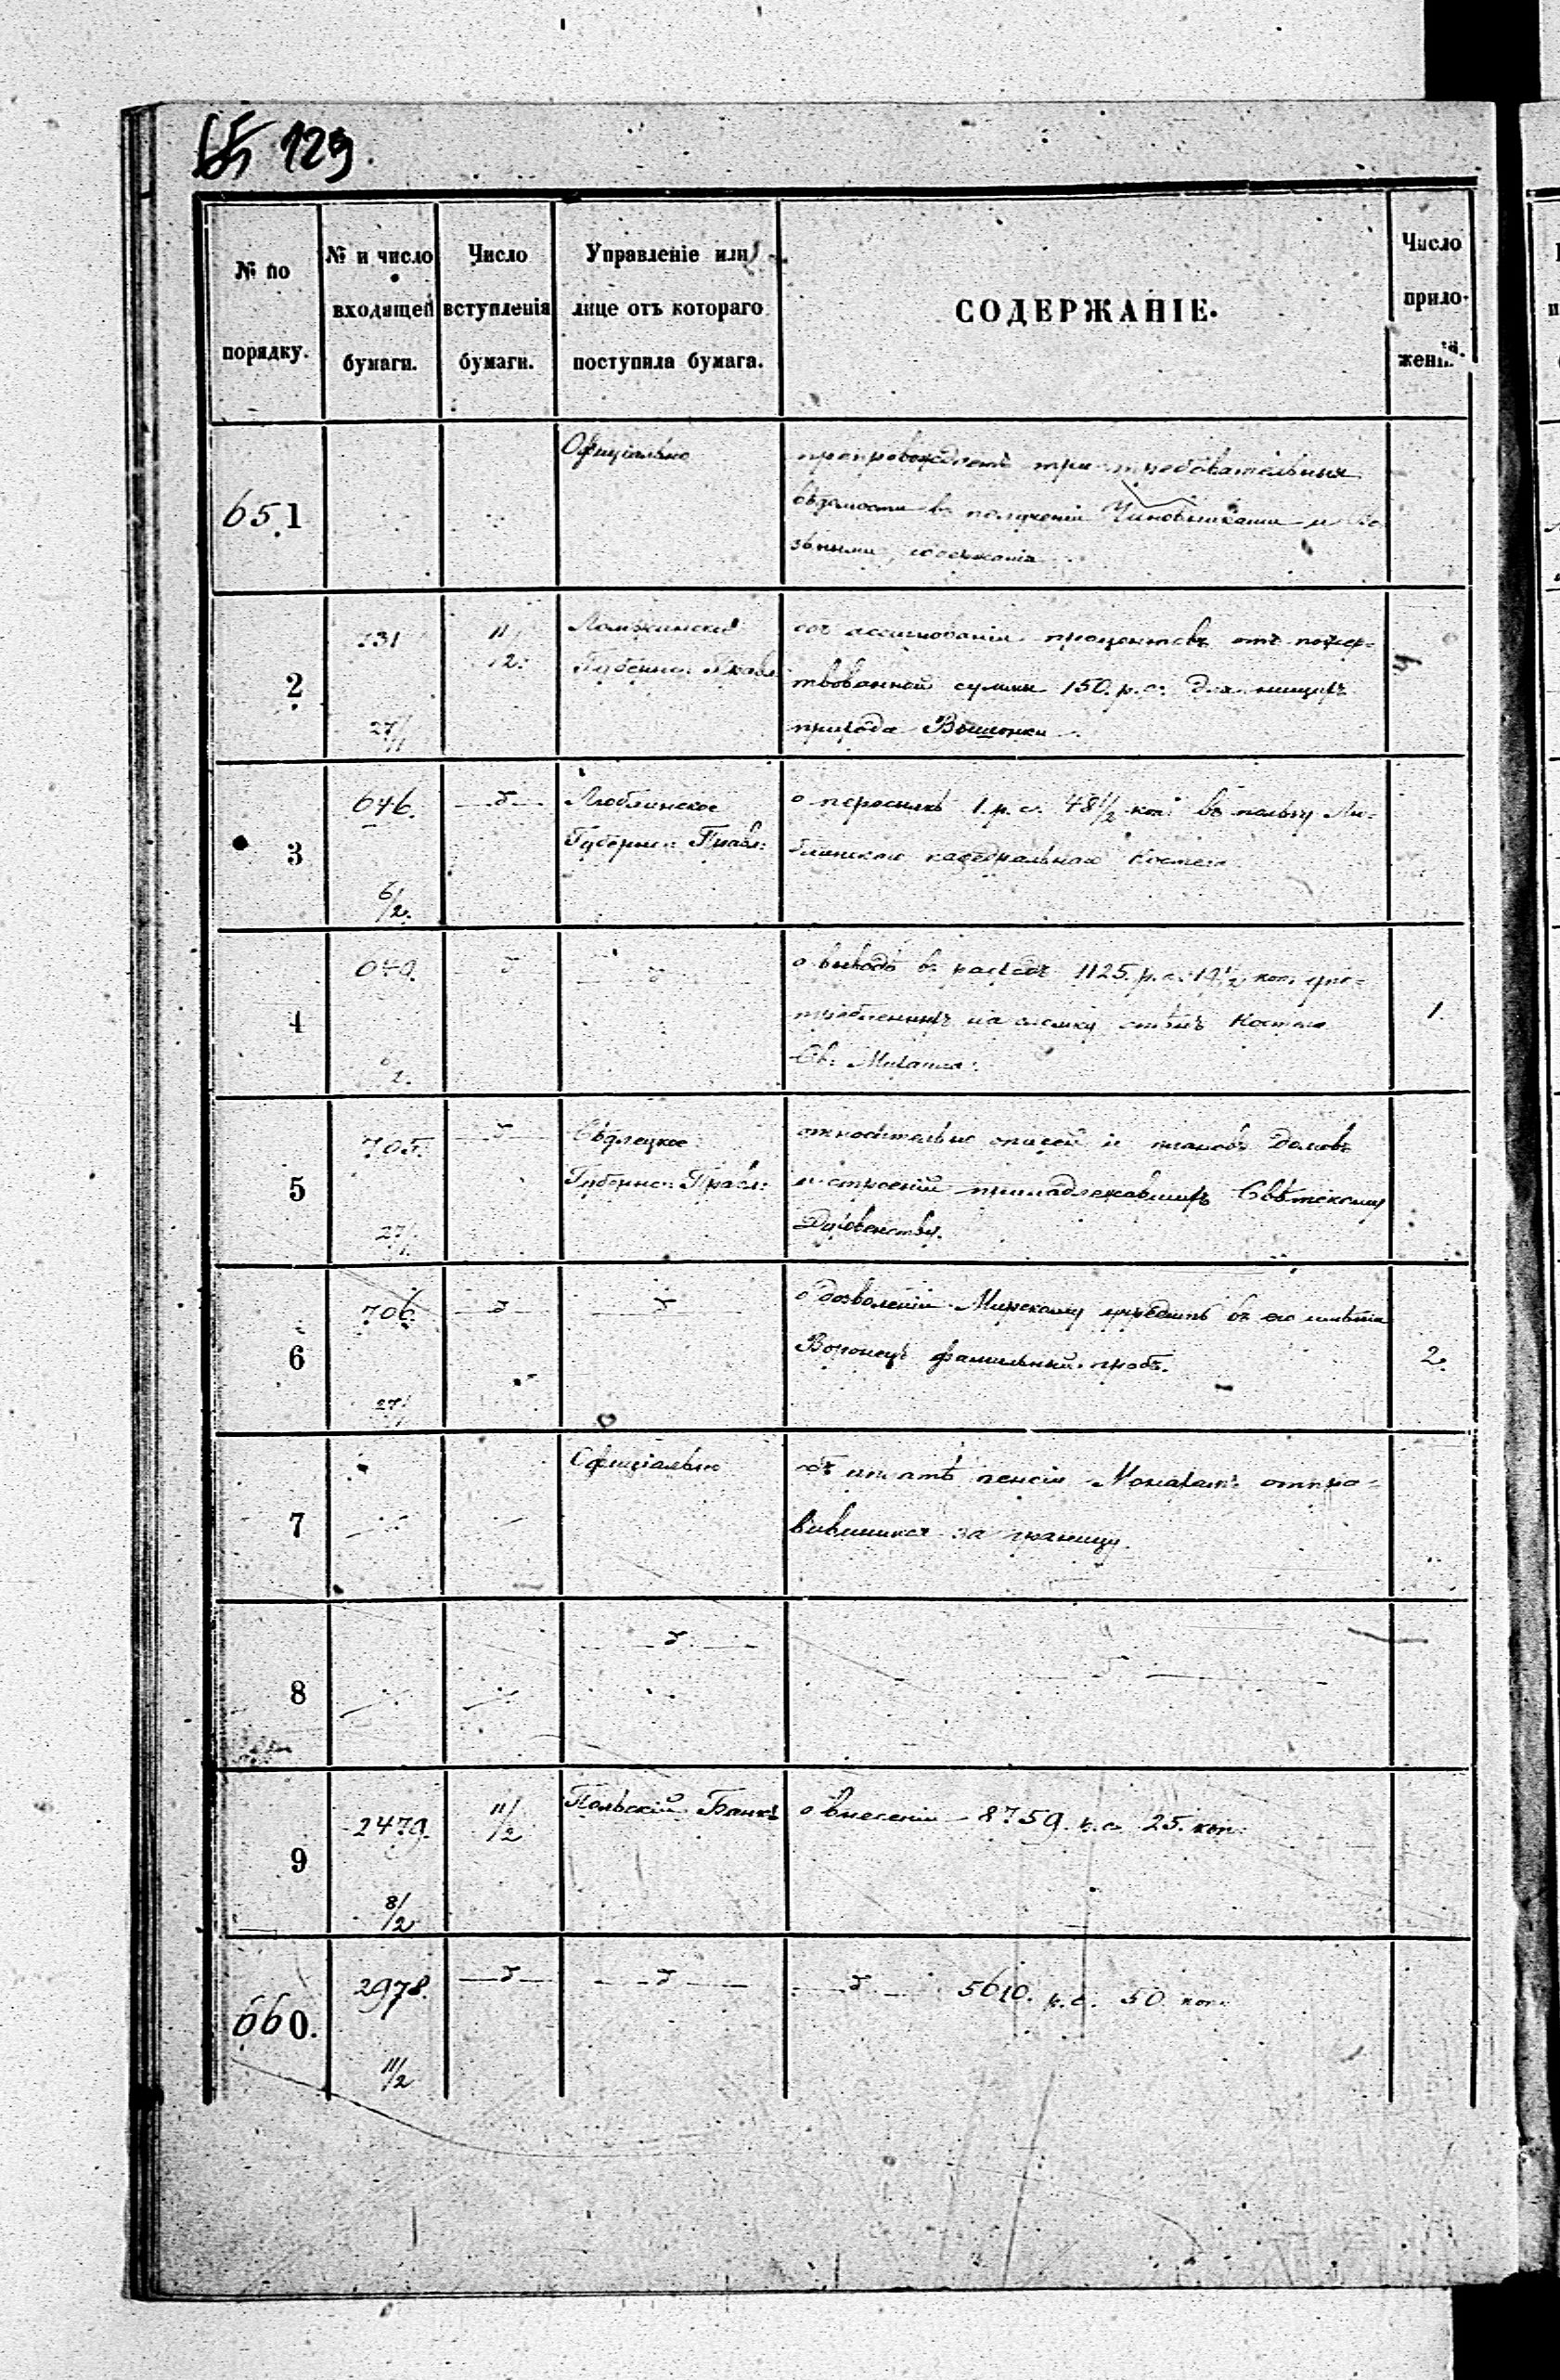 65 129.
№ по порядку.
№ и число входящей бумаги.
Число вступленія бумаги.
Управленіе или лице отъ котораго поступила бумага.
СОДЕРЖАНІЕ.
Число прило- женій.
651
Офиціально
препровождаетъ три требовательныя
вѣдомости въ полученіи Чиновниками и
содержанія
2
731
27/1
11/2.
Ломжинское
Губернс: Правл:
объ ассигнованіи процентовъ отъ пожер-
твованной суммы 150. р. с. для нищихъ
прихода Вышонки
4
3
646.
6/2.
Люблинское
Губернс: Правл:
о пересылкѣ 1. р. с. 48 1/2 коп: въ пользу Лю-
блинскаго кафедральнаго Костела
4
649.
6/2.
о выводѣ въ расходъ 1125. р. с. 19 1/2 коп. упо-
требленныхъ на сломку стѣнъ Костела
Св: Михаила.
1.
5
705.
27/1.
Сѣдлецкое
Губернс: Правл:
относительно описей и плановъ домовъ
и строеній принадлежавшихъ Свѣтскому
Духовенству.
6
706.
27/1
о дозволеніи Мирскому учредить въ его имѣніи
Воронецъ фамильный гробъ.
2.
7
Офиціально
объ уплатѣ пенсіи Монахамъ отпра-
вившимся за границу.
8
9
2479.
8/2
11/2
Польскій Банкъ
о внесеніи 8759. р. с. 25. коп.
660.
2978.
11/2
5610. р. с. 50 коп.